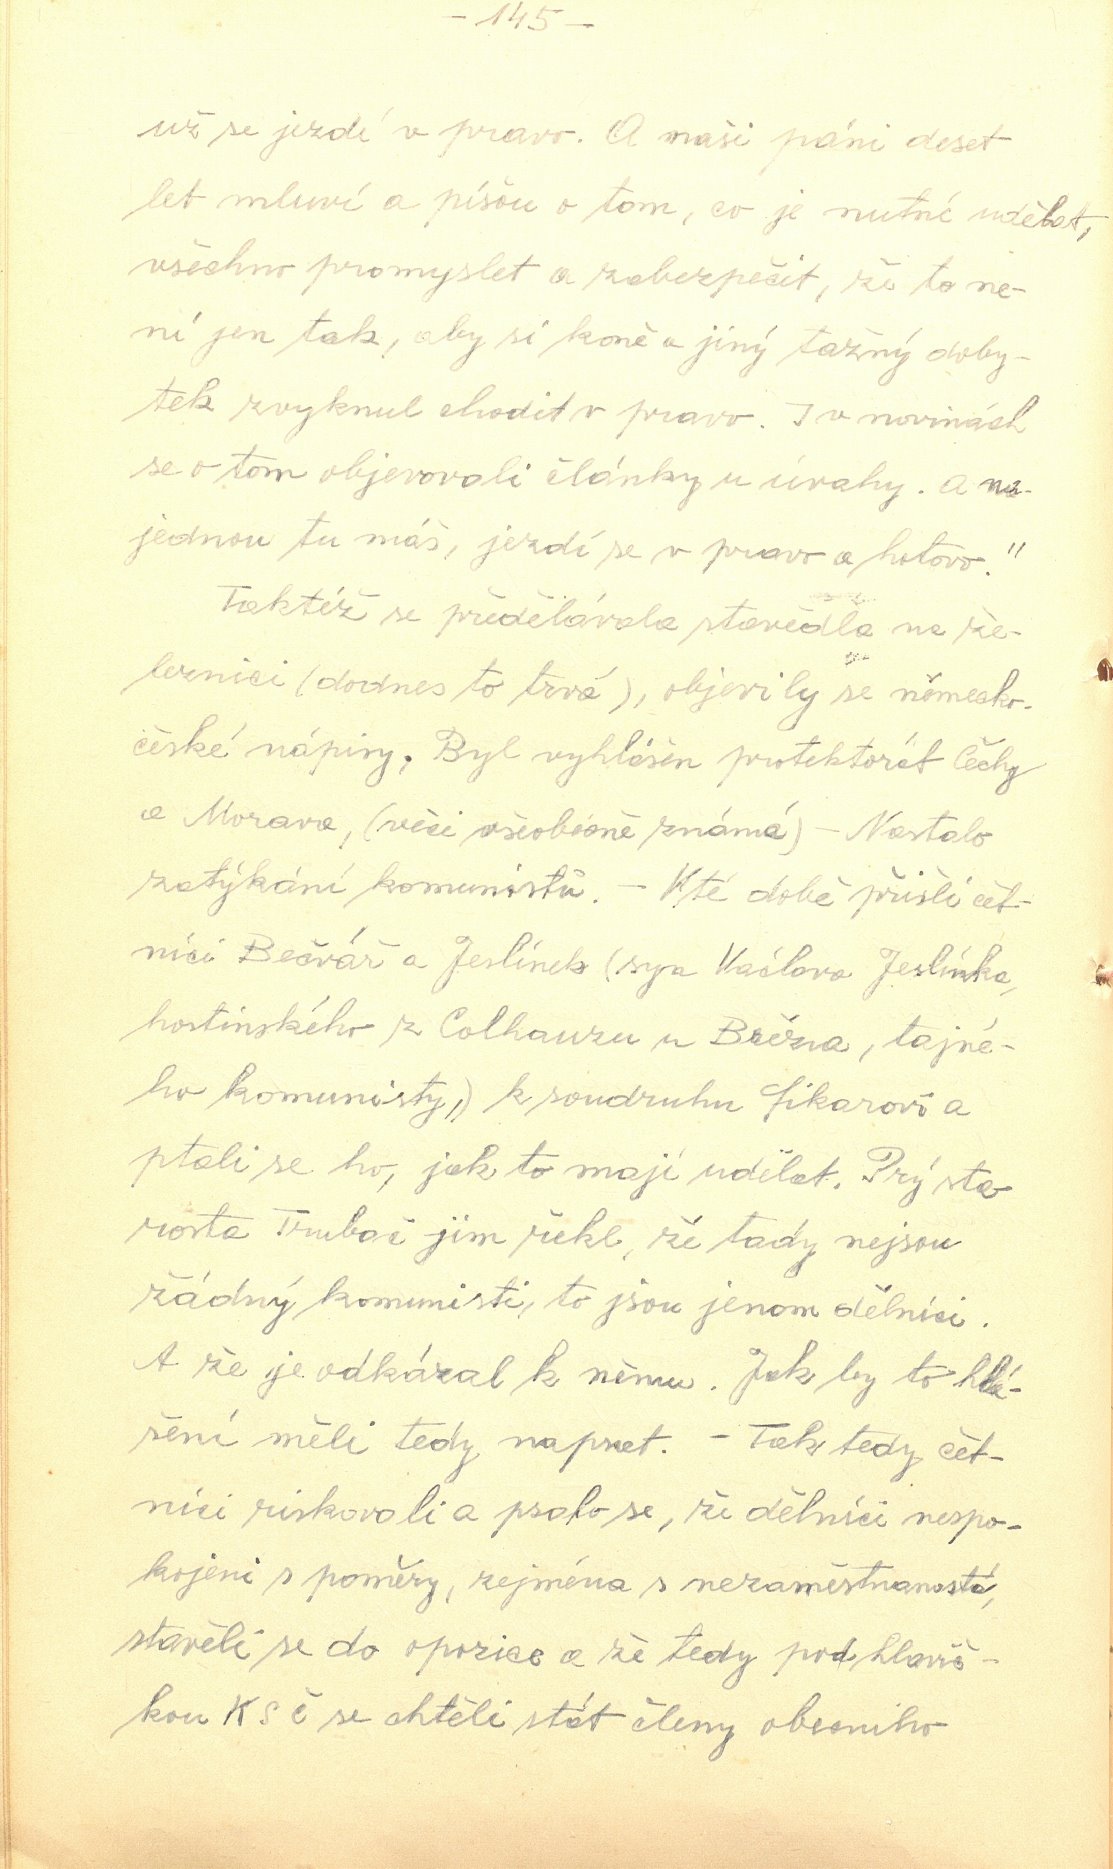 - 145 -
už se jezdí v pravo. A naši páni deset
let mluví a píšou o tom, co je nutné udělat,
všechno promyslet a zabezpečit, že to ne-
ní jen tak, aby si koně a jiný tažný doby-
tek zvyknul chodit v pravo. I v novinách
se o tom objevovali články u úvahy. a na-
jednou tu máš, jezdí se v pravo a hotovo."
Taktéž se předělávala stavědla na že-
leznici (dodnes to trvá), objevily se německo-
české nápisy. Byl vyhlášen protektorát Čechy
a Morava, (věci všeobecně známá) - Nastalo
zatýkání komunistů. - V té době přišli čet-
níci Bečvář a Jeslínek (syn Václava Jeslínka,
hostinského z Colhauzu u Března, tajné-
ho komunisty,) k soudruhu Fikarovi a
ptali se ho, jak to mají udělat. Prý sta
rosta Trubač jim řekl, že tady nejsou
žádný komunisti, to jsou jenom dělníci.
A že je odkázal k němu. Jak by to hlá-
šení měli tedy napsat. - Tak tedy čet-
níci riskovali a psalo se, že dělníci nespo-
kojeni s poměry, zejména s nezaměstnaností,
stavěli se do opozice a že tedy pod hlavič-
kou KSČ se chtěli stát členy obecního